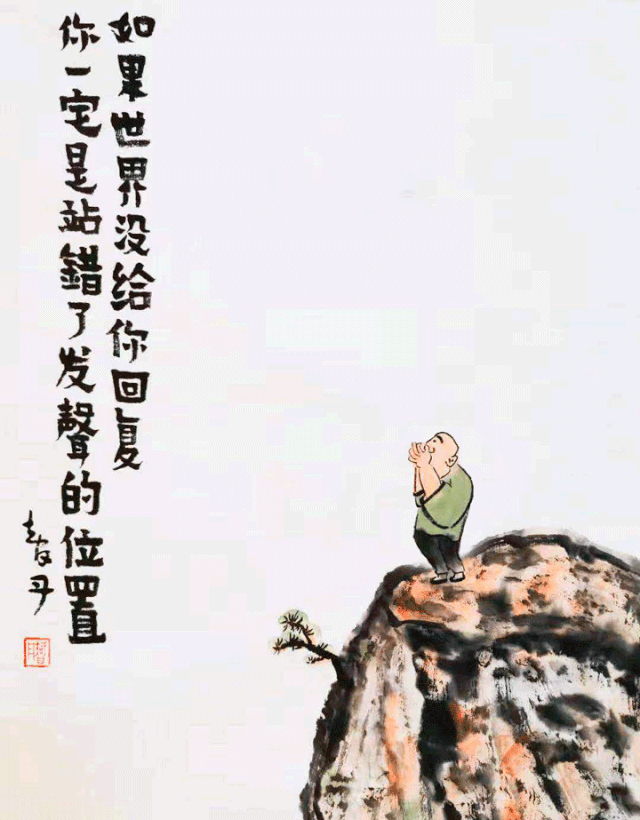 如果世界没给你回复
你一定是站錯了发聲的位置